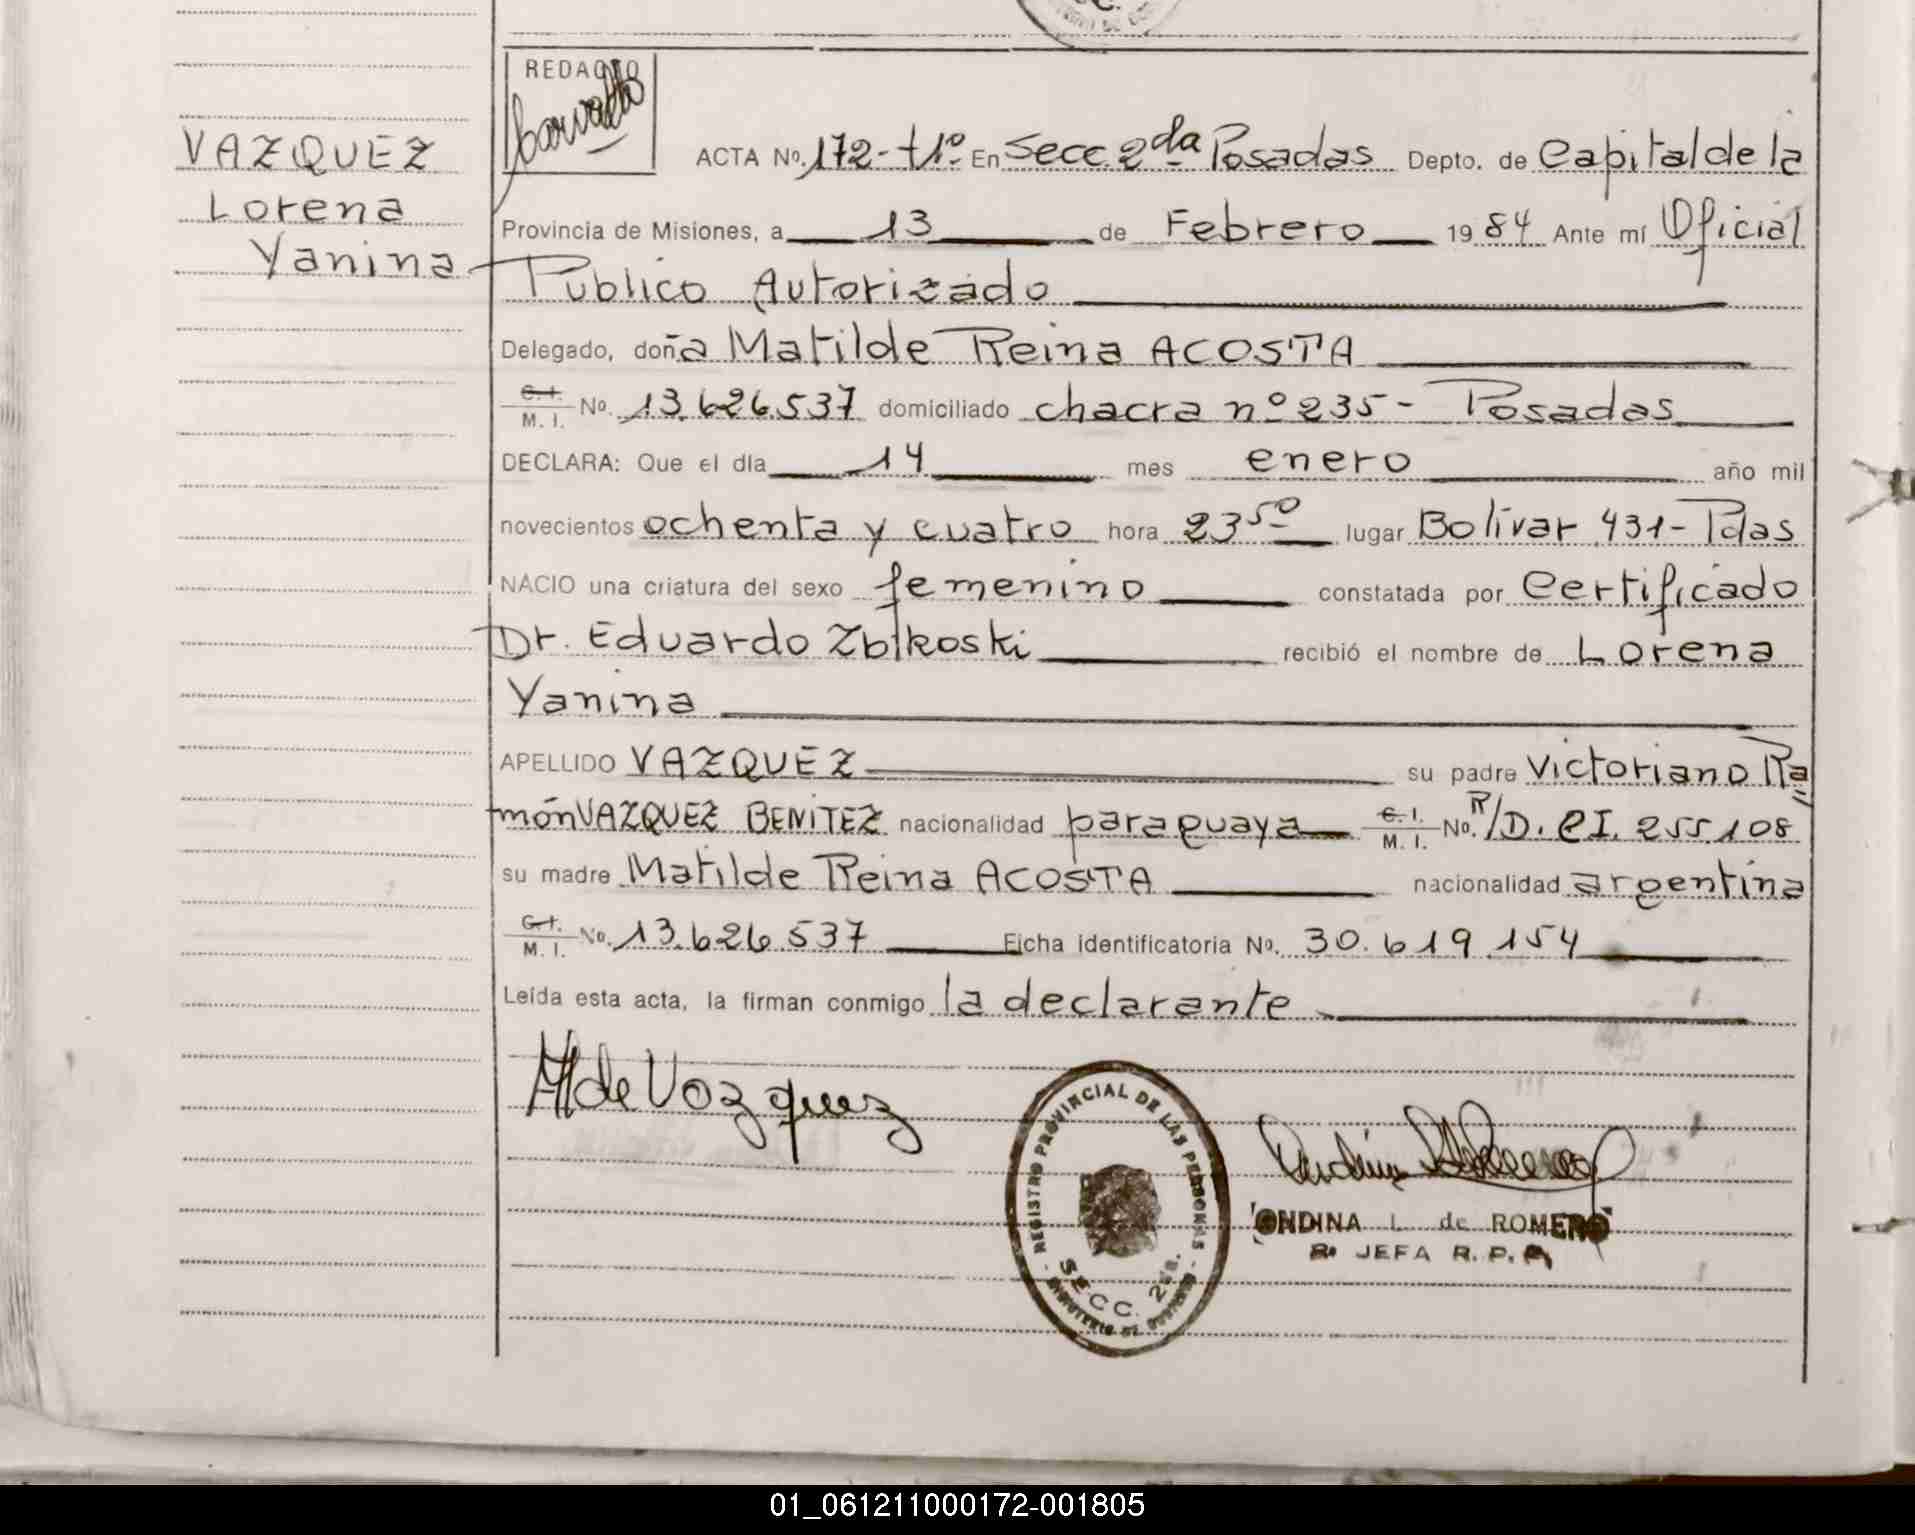 VAZQUEZ
Lorena
Yanina
REDACTO
ACTA No. 172-t1º- En Secc. 2da Posadas Depto. de Capital de la
Provincia de Misiones, a 13 de Febrero 1984 Ante mí Oficial
Público Autorizado
Delegado, doña Matilde Reina ACOSTA
C. I. / M. I. No. 13.626.537 domiciliado chacra nº 235- Posadas
DECLARA: Que el día 14 mes enero año mil
novecientos ochenta y cuatro hora 23 50 lugar Bolívar 431- Pdas
NACIO una criatura del sexo femenino constatada por Certificado
Dr. Eduardo Zbikoski recibió el nombre de Lorena
Yanina
APELLIDO VAZQUEZ su padre Victoriano Ra
món VAZQUEZ BENITEZ nacionalidad paraguaya C. I. / M. I. No. R/D. CI. 255.108
su madre Matilde Reina ACOSTA nacionalidad argentina
C. I. / M. I. No. 13.626.537 Ficha identificatoria No. 30.619.154
Leída esta acta, la firman conmigo la declarante
M de Vazquez
REGISTRO PROVINCIAL DE LAS PERSONAS
SECC. 2da.
MINISTERIO DE GOBIERNO
ONDINA L. de ROMERO
JEFA R. P. P.
01_061211000172-001805